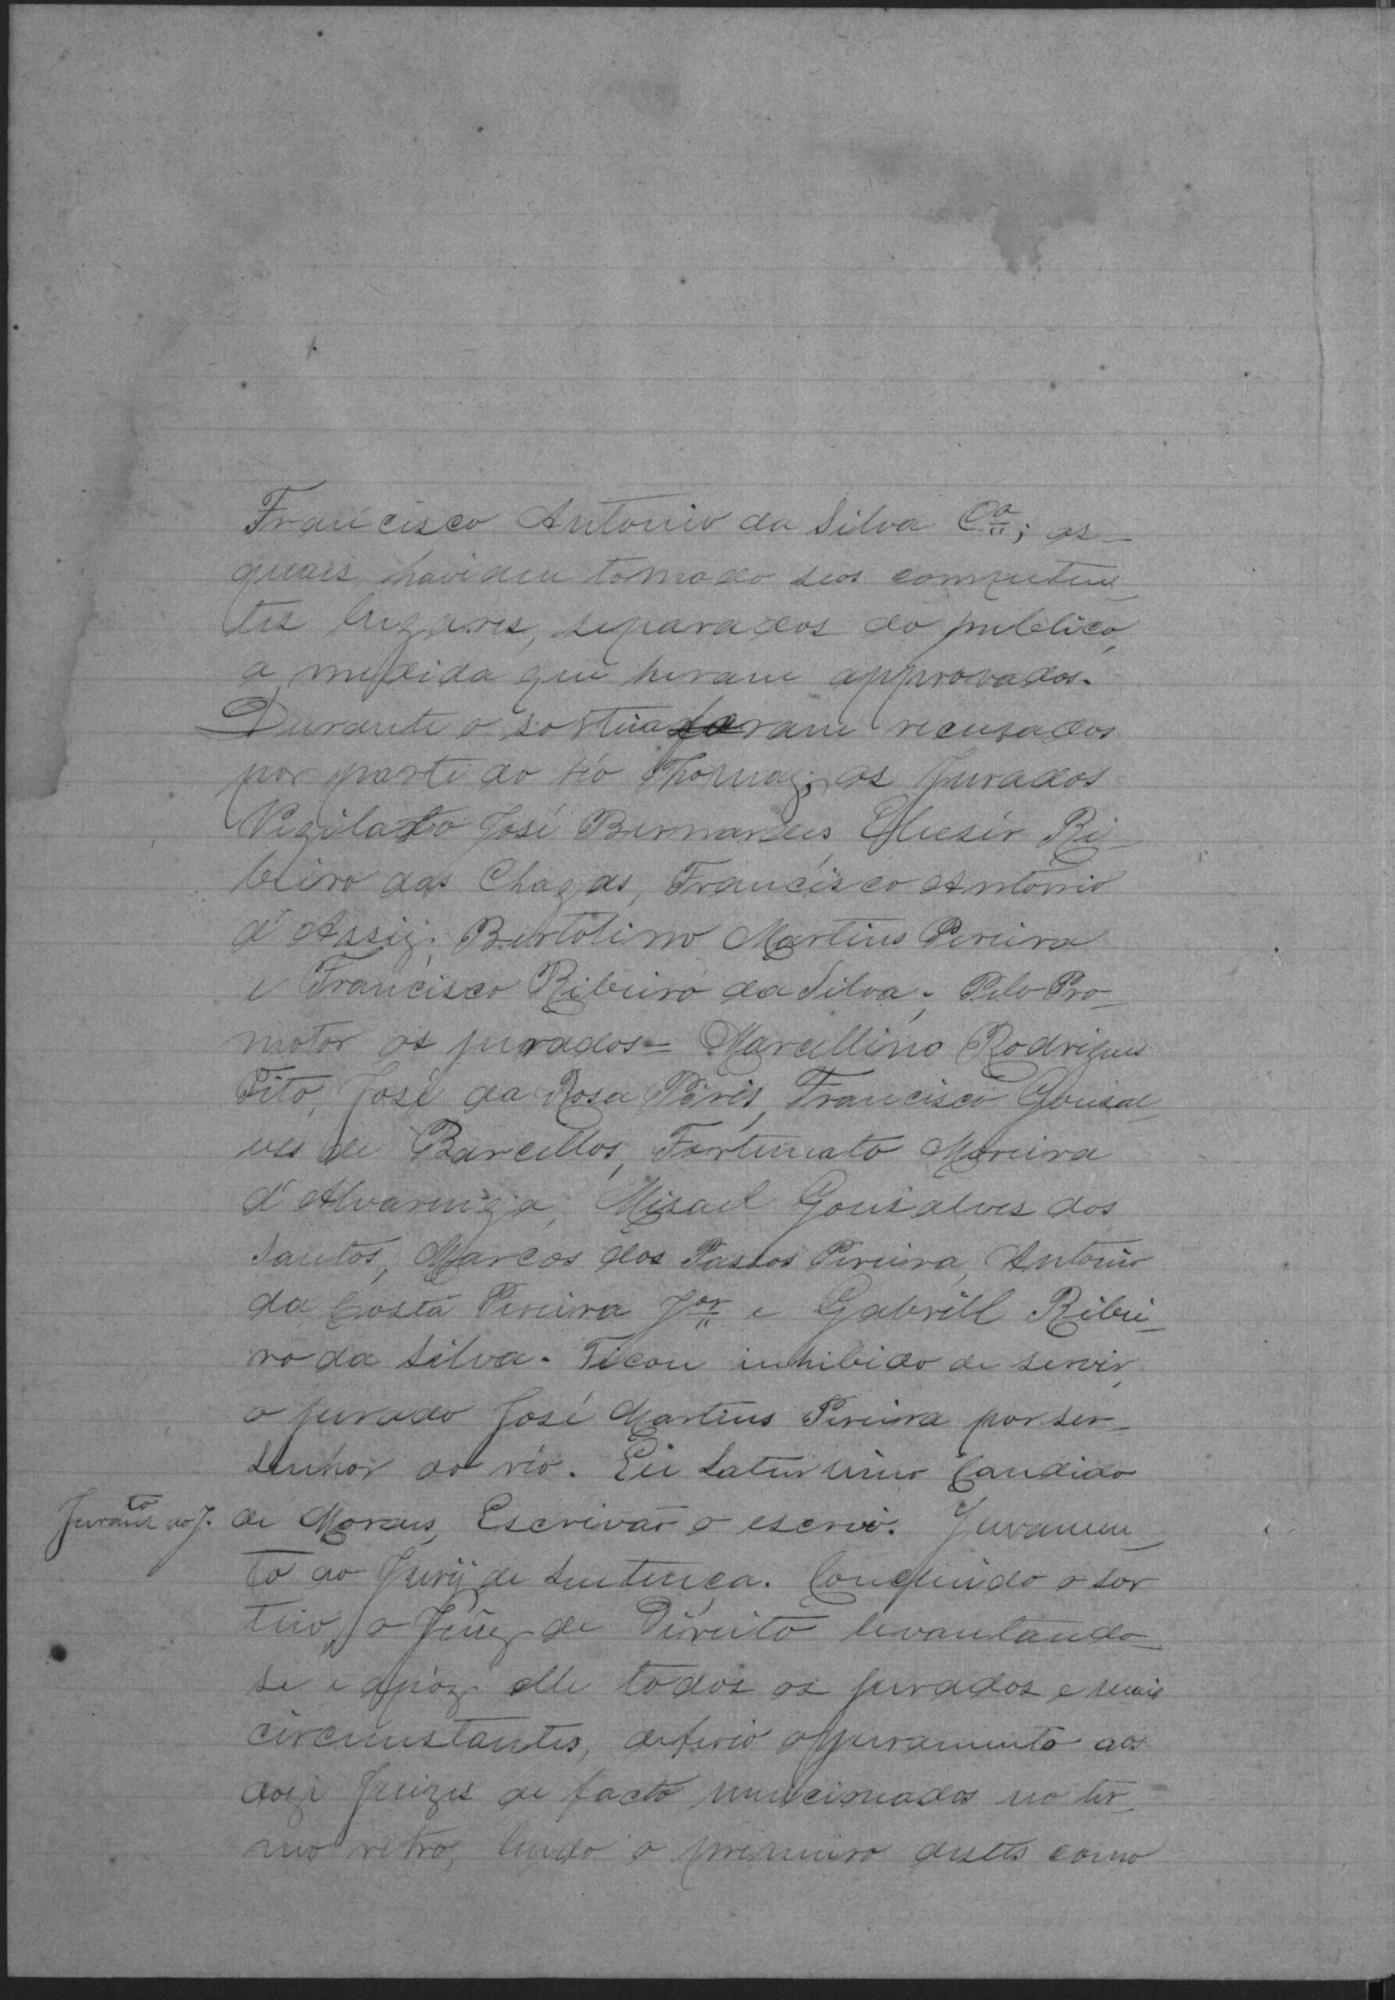 Francisco Antonio da Silva Cª; os
quais havidem tomado seos competen
tes lugares, separados do publico,
a medida que heram approvados.
Durante o sorteio foram recusados
por parte do réo Thomaz, os Jurados
Vigilato José Bernardes, Eliesér Ri-
beiro das Chagas, Francisco Antonio
d'Assiz, Bertolino Martins Pereira
e Francisco Ribeiro da Silva; Pelo Pro-
motor os jurados = Marcellino Rodrigues
Tito, José da Rosa Peres, Francisco Gonsal
ves de Barcellos, Fortunato Moreira
d'Alvarenga, Misael Gonsalves dos
Santos, Marcos dos Passos Pereira, Antonio
da Costa Pereira Jor e Gabriel Ribei-
ro da Silva. Ficou inhibido de servir,
o jurado José Martins Pereira por ser
senhor do réo. Eu Saturnino Candido
Juramto ao J. de Moraes, Escrivão o escrevi. Juramen-
to ao Jury de Sentença. Concluido o sor
teio, o Juiz de Direito levantando-
se e apóz elle todos os jurados e mais
circunstantes, deferio o juramento aos
doze Juizes de facto mencionados no ter-
mo retro, lendo o primeiro destes como